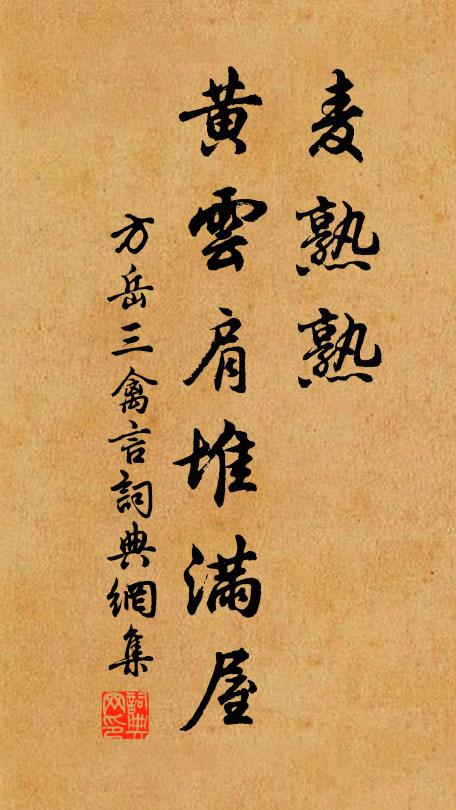 麦熟熟
黄雲肩堆满屋
方岳三禽言詞典網集
詞典网印